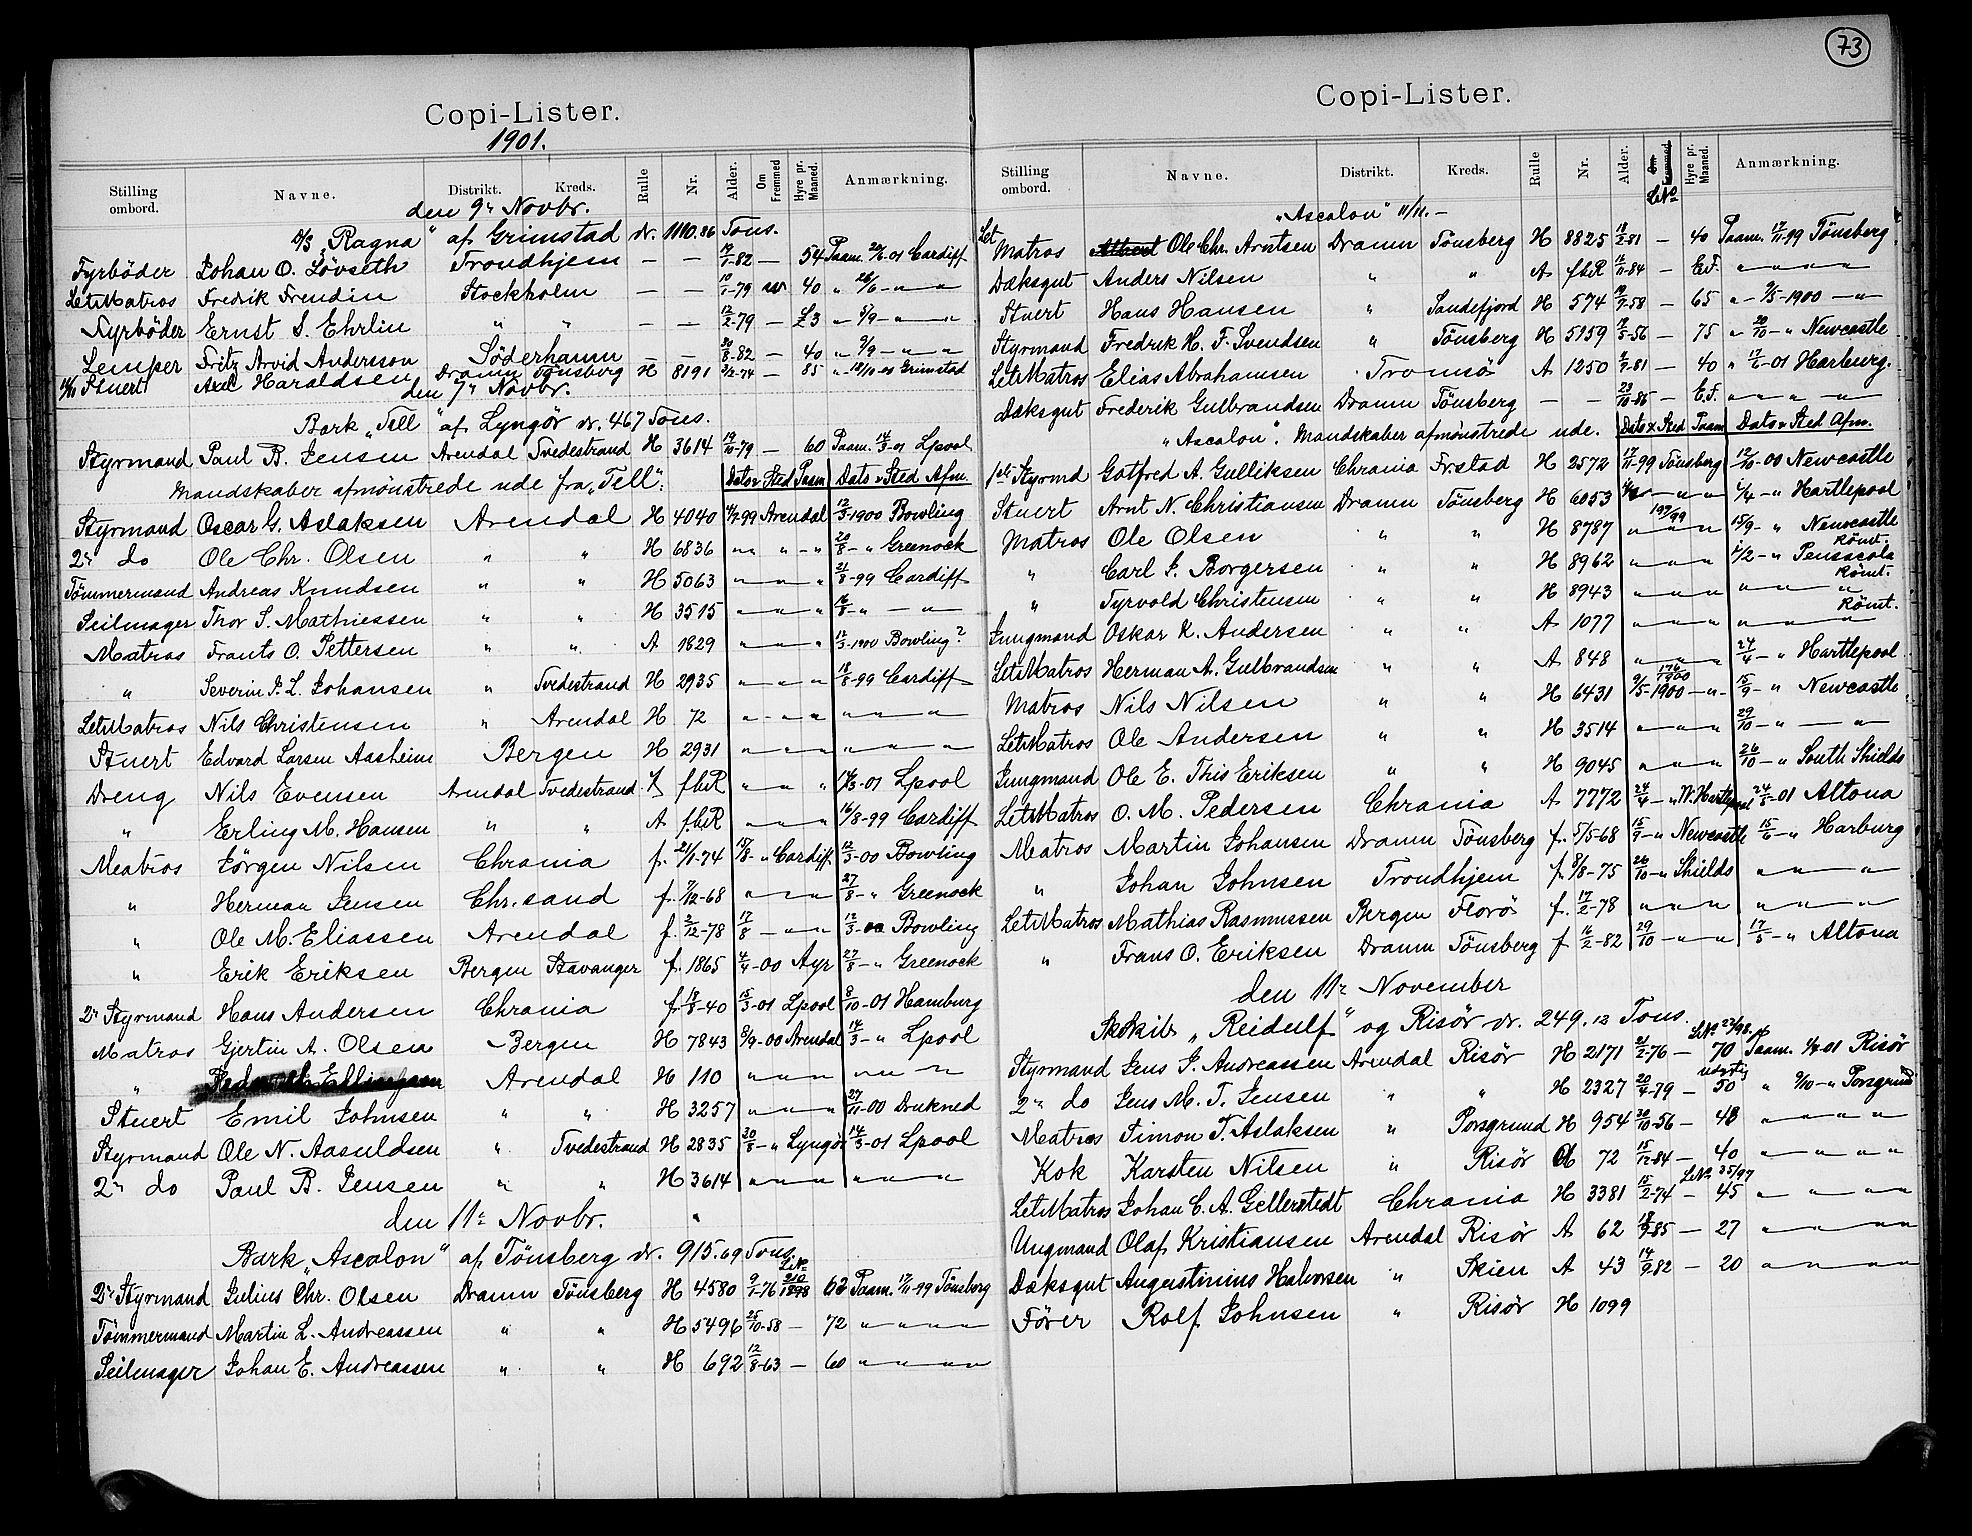 73
Copi-Lister.
1901.
Stilling ombord. Navne. Distrikt. Kreds. Rulle Nr. Alder. Om Fremmed Hyre pr. Maaned. Anmærkning.
den 9de Novbr.
"Ragna" af Grimstad dr. 1110.86 Tons.
Fyrbøder Johan O. Lövseth Trondhjem — — -82 — 54 Paam. -01 Cardiff
Let Matros Fredrik Frendin Stockholm — — -79 40 " — " — "
Fyrbøder Ernst S. Ehrlin " " — — 12/2-79 — £3 " — " — "
Lemper Fritz Arvid Andersson Söderhamn — — 30/8-82 — 40 " — " — "
Stuert Axel Haraldsen Dramn Tönsberg H 8191 -74 — 85 " Grimstad
den 7de Novbr.
Bark "Tell" af Lyngör dr. 467 Tons.
Styrmand Paul B. Jensen Arendal Tvedestrand H 3614 19/10-79 — 60 Paam. 14/3-01 Lpool
Mandskaber afmönstrede ude fra "Tell": Dato & Sted Paam Dato & Sted Afm.
Styrmand Oscar G. Aslaksen Arendal H 4040 -99 Arendal 12/3-1900 Bowling
2n do Ole Chr. Olsen " " H 6836 " " — " 20/8 — " Greenock
Tömmermand Andreas Knudsen " " H 5063 " — " — " 21/8-99 Cardiff
Seilmager Thor S. Mathiessen " " H 3515 " — " — " 16/8 — " — "
Matros Frants O. Pettersen " " A 1829 " — " — " 12/3-1900 Bowling?
" Severin J. L. Johansen " Tvedestrand H 2935 " — " — " 18/8-99 Cardiff
Let Matros Nils Christensen " Arendal H 72 " — " — " " — " — "
Stuert Edvard Larsen Aasheim Bergen H 2931 " — " — " " — " — "
Dreng Nils Evensen Arendal Tvedestrand f.b.R " — " " 14/3-01 Lpool
" Erling M. Hansen " " A f.b.R " — " — " 16/8-99 Cardiff
Matros Jörgen Nilsen Chrania f. 21/1-74 17/8 — " Cardiff 12/3-00 Bowling
" Herman Jensen Chr.sand f. 7/12-68 " — " — " 27/8 — " Greenock
" Ole M. Eliassen Arendal f. 2/12-78 17/8 — " — " 12/3-00 Bowling
" Erik Eriksen Bergen Stavanger f. 1865 4/4-00 Ayr 27/8 — " Greenock
2n Styrmand Hans Andersen Chrania f. -40 15/3-01 Lpool 8/10-01 Hamburg
Matros Gjertin A. Olsen Bergen H 7843 8/9-00 Arendal 14/3 — " Lpool
" Ellingsen Arendal H 110 " — " — " " — " — "
Stuert Emil Johnsen " " H 3257 " — " — " 27/11-00 Drukned
Styrmand Ole N. Aasuldsen " Tvedestrand H 2835 30/8 — " Lyngör 14/3-01 Lpool
2n do Paul B. Jensen " " H 3614 " — " — " " — " — "
den 11te Novbr.
Bark "Ascalon" af Tönsberg dr. 915.69 Tons.
2n Styrmand Julius Chr. Olsen Dramn Tönsberg H 4580 9/1-76 LNo 210/1898 62 Paam. 17/11-99 Tönsberg
Tömmermand Martin L. Andreassen " " H 5496 25/10-58 — 72 " — " — " — "
Seilmager Johan E. Andreassen " " H 692 12/8-63 — 60 " — " — " — "
Copi-Lister.
Stilling ombord. Navne. Distrikt. Kreds. Rulle Nr. Alder. Om Fremmed LNo Hyre pr. Maaned. Anmærkning.
"Ascalon" 11/11. —
Let Matros Ole Chr. Arntsen Dramn Tönsberg H 8825 -81 — 40 Paam. 17/11-99 Tönsberg
Dæksgut Anders Nilsen " " A f.b.R -84 — E.F. " — " — " — "
Stuert Hans Hansen " Sandefjord H 574 -58 — 65 " — 9/5-1900 — "
Styrmand Fredrik H. F. Svendsen " Tönsberg H 5159 -56 — 75 " 20/10 — " Newcastle
Let Matros Elias Abrahamsen Tromsö A 1250 -81 — 40 " -01 Harburg.
Dæksgut Frederik Gulbrandsen Dramn Tönsberg — — 23/10-86 — E.F. " — " — " — "
"Ascalon". Mandskaber afmönstrede ude. Dato & Sted Paam Dato & Sted Afm.
1ste Styrmd Gotfred A. Gulliksen Chrania Frstad H 2572 17/11-99 Tönsberg 12/10-00 Newcastle
Stuert Arnt N. Christiansen Dramn Tönsberg H 6053 — " — " — " Hartlepool
Matros Ole Olsen " " H 8787 197/99 " — " — " 15/9 — " Newcastle
" Carl J. Borgersen " " H 8962 " — " — " 1/2 — " Pensacola Römt.
" Tyrvald Christensen " " H 8943 " — " — " " — " — " Römt.
Jungmand Oskar K. Andersen " " A 1077 " — " — " " — " — " Römt.
Let Matros Herman A. Gulbrandsen " " A 848 " — " — " 24/4 — " Hartlepool
Matros Nils Nilsen " " H 6431 176/1900 9/5-1900 — " 15/9 — " Newcastle
Let Matros Ole Andersen " " H 3514 " — " — " 29/10 — " — "
Jungmand Ole E. This Eriksen " " H 9045 " — " — " 26/10 — " South Shields
Let Matros O. M. Pedersen Chrania A 7772 24/4 — " W. Hartlepool 24/5-01 Altona
Matros Martin Johansen Dramn Tönsberg f. 5/5-68 15/9 — " Newcastle 15/6 — " Harburg
" Johan Johnsen Trondhjem f. 8/8-75 26/10 — " Shields " — " — "
Let Matros Mathias Rasmussen Bergen Florö f. 17/2-78 " — " — " " — " — "
" Frans O. Eriksen Dramn Tönsberg f. 16/2-82 29/10 — " — " 17/5 — " Altona
den 11te November
Skskib "Reidulf" og Risör dr. 249.12 Tons.
Styrmand Jens J. Andreassen Arendal Risör H 2171 21/2-76 — LNo 27/98 70 Paam. -01 Risör
2n do Jens M. T. Jensen " " H 2327 20/4-79 — 50 " 9/10 — " Porsgrund
Matros Simon T. Aslaksen " Porsgrund H 954 20/10-56 — 48 " — " — " — "
Kok Karsten Nilsen " Risör A 72 15/12-84 — 40 " — " — " — "
Let Matros Johan C. A. Gellerstedt Chrania H 3381 15/2-74 — LNo 35/97 45 " — " — " — "
Ungmand Olaf Kristiansen Arendal Risör A 62 -85 — 27 " — " — " — "
Dæksgut Augustinius Halvorsen " Skien A 43 14/9-82 — 20 " — " — " — "
Förer Rolf Johnsen " Risör H 1099